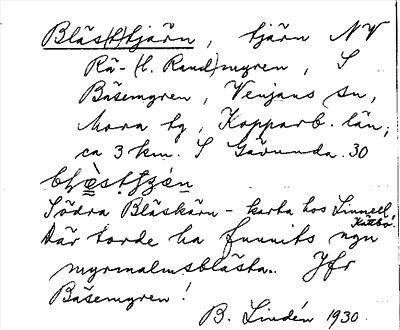 Bläs(t)tjärn, tjärn NV
Rä- (l. Rand)myren, S
Båsemyren, Venjans sn,
Mora tg, Kopparb. län,
ca 3 km. S Gävunda. 30
Södra Bläskärn - karta hos Linnell, Kättbo!
Där torde ha funnits ngn
myrmalmsblästa. Jfr
Båsemyren!
B. Lindén 1930.